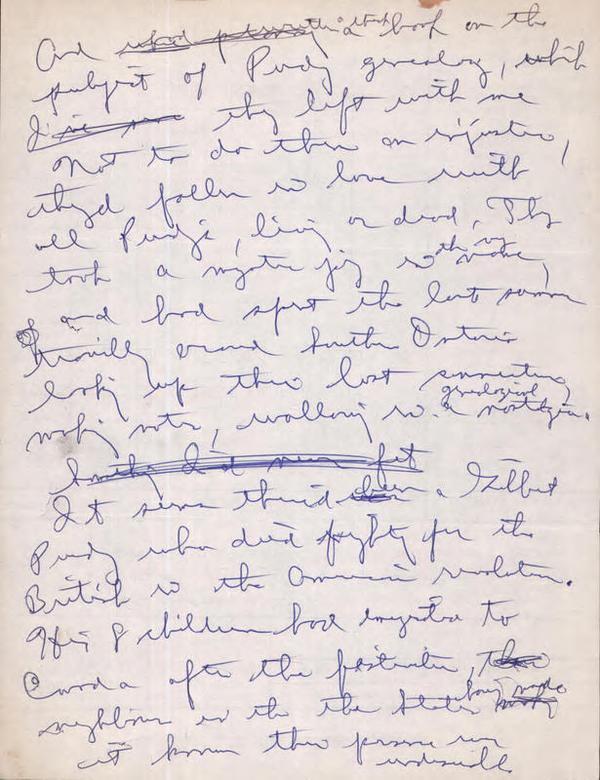 And a book on the
subject of Purdy genealogy, which
they left with me
Not to do them an injustice,
they'd fallen in love with
all Purdys, living or dead. They
took a mystic joy in the name,
and had spent the last summer
travelling around southern Ontario
looking up their lost connections,
making notes, wallowing in a genealogical nostalgia.
It seems there'd been a Gilbert
Purdy who died fighting for the
British in the American revolution.
His 8 children had emigrated to
Canada after the
neighbours in the the States having made
it known their presence was
undesirable